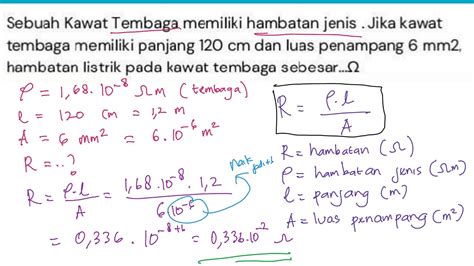 Sebuah Kawat Tembaga memiliki hambatan jenis . Jika kawat
tembaga memiliki panjang 120 cm dan luas penampang 6 mm2,
hambatan listrik pada kawat tembaga sebesar...Ω
ρ = 1,68 . 10⁻⁸ Ωm (tembaga)
l = 120 cm = 1,2 m
A = 6 mm² = 6.10⁻⁶ m²
R = ..?
R = ρ.l / A = 1,68.10⁻⁸ . 1,2 / 6.10⁻⁶
naik jadi +
= 0,336 . 10⁻⁸⁺⁶ = 0,336.10⁻² Ω
R = ρ.l / A
R = hambatan (Ω)
ρ = hambatan jenis (Ωm)
l = panjang (m)
A = luas penampang (m²)